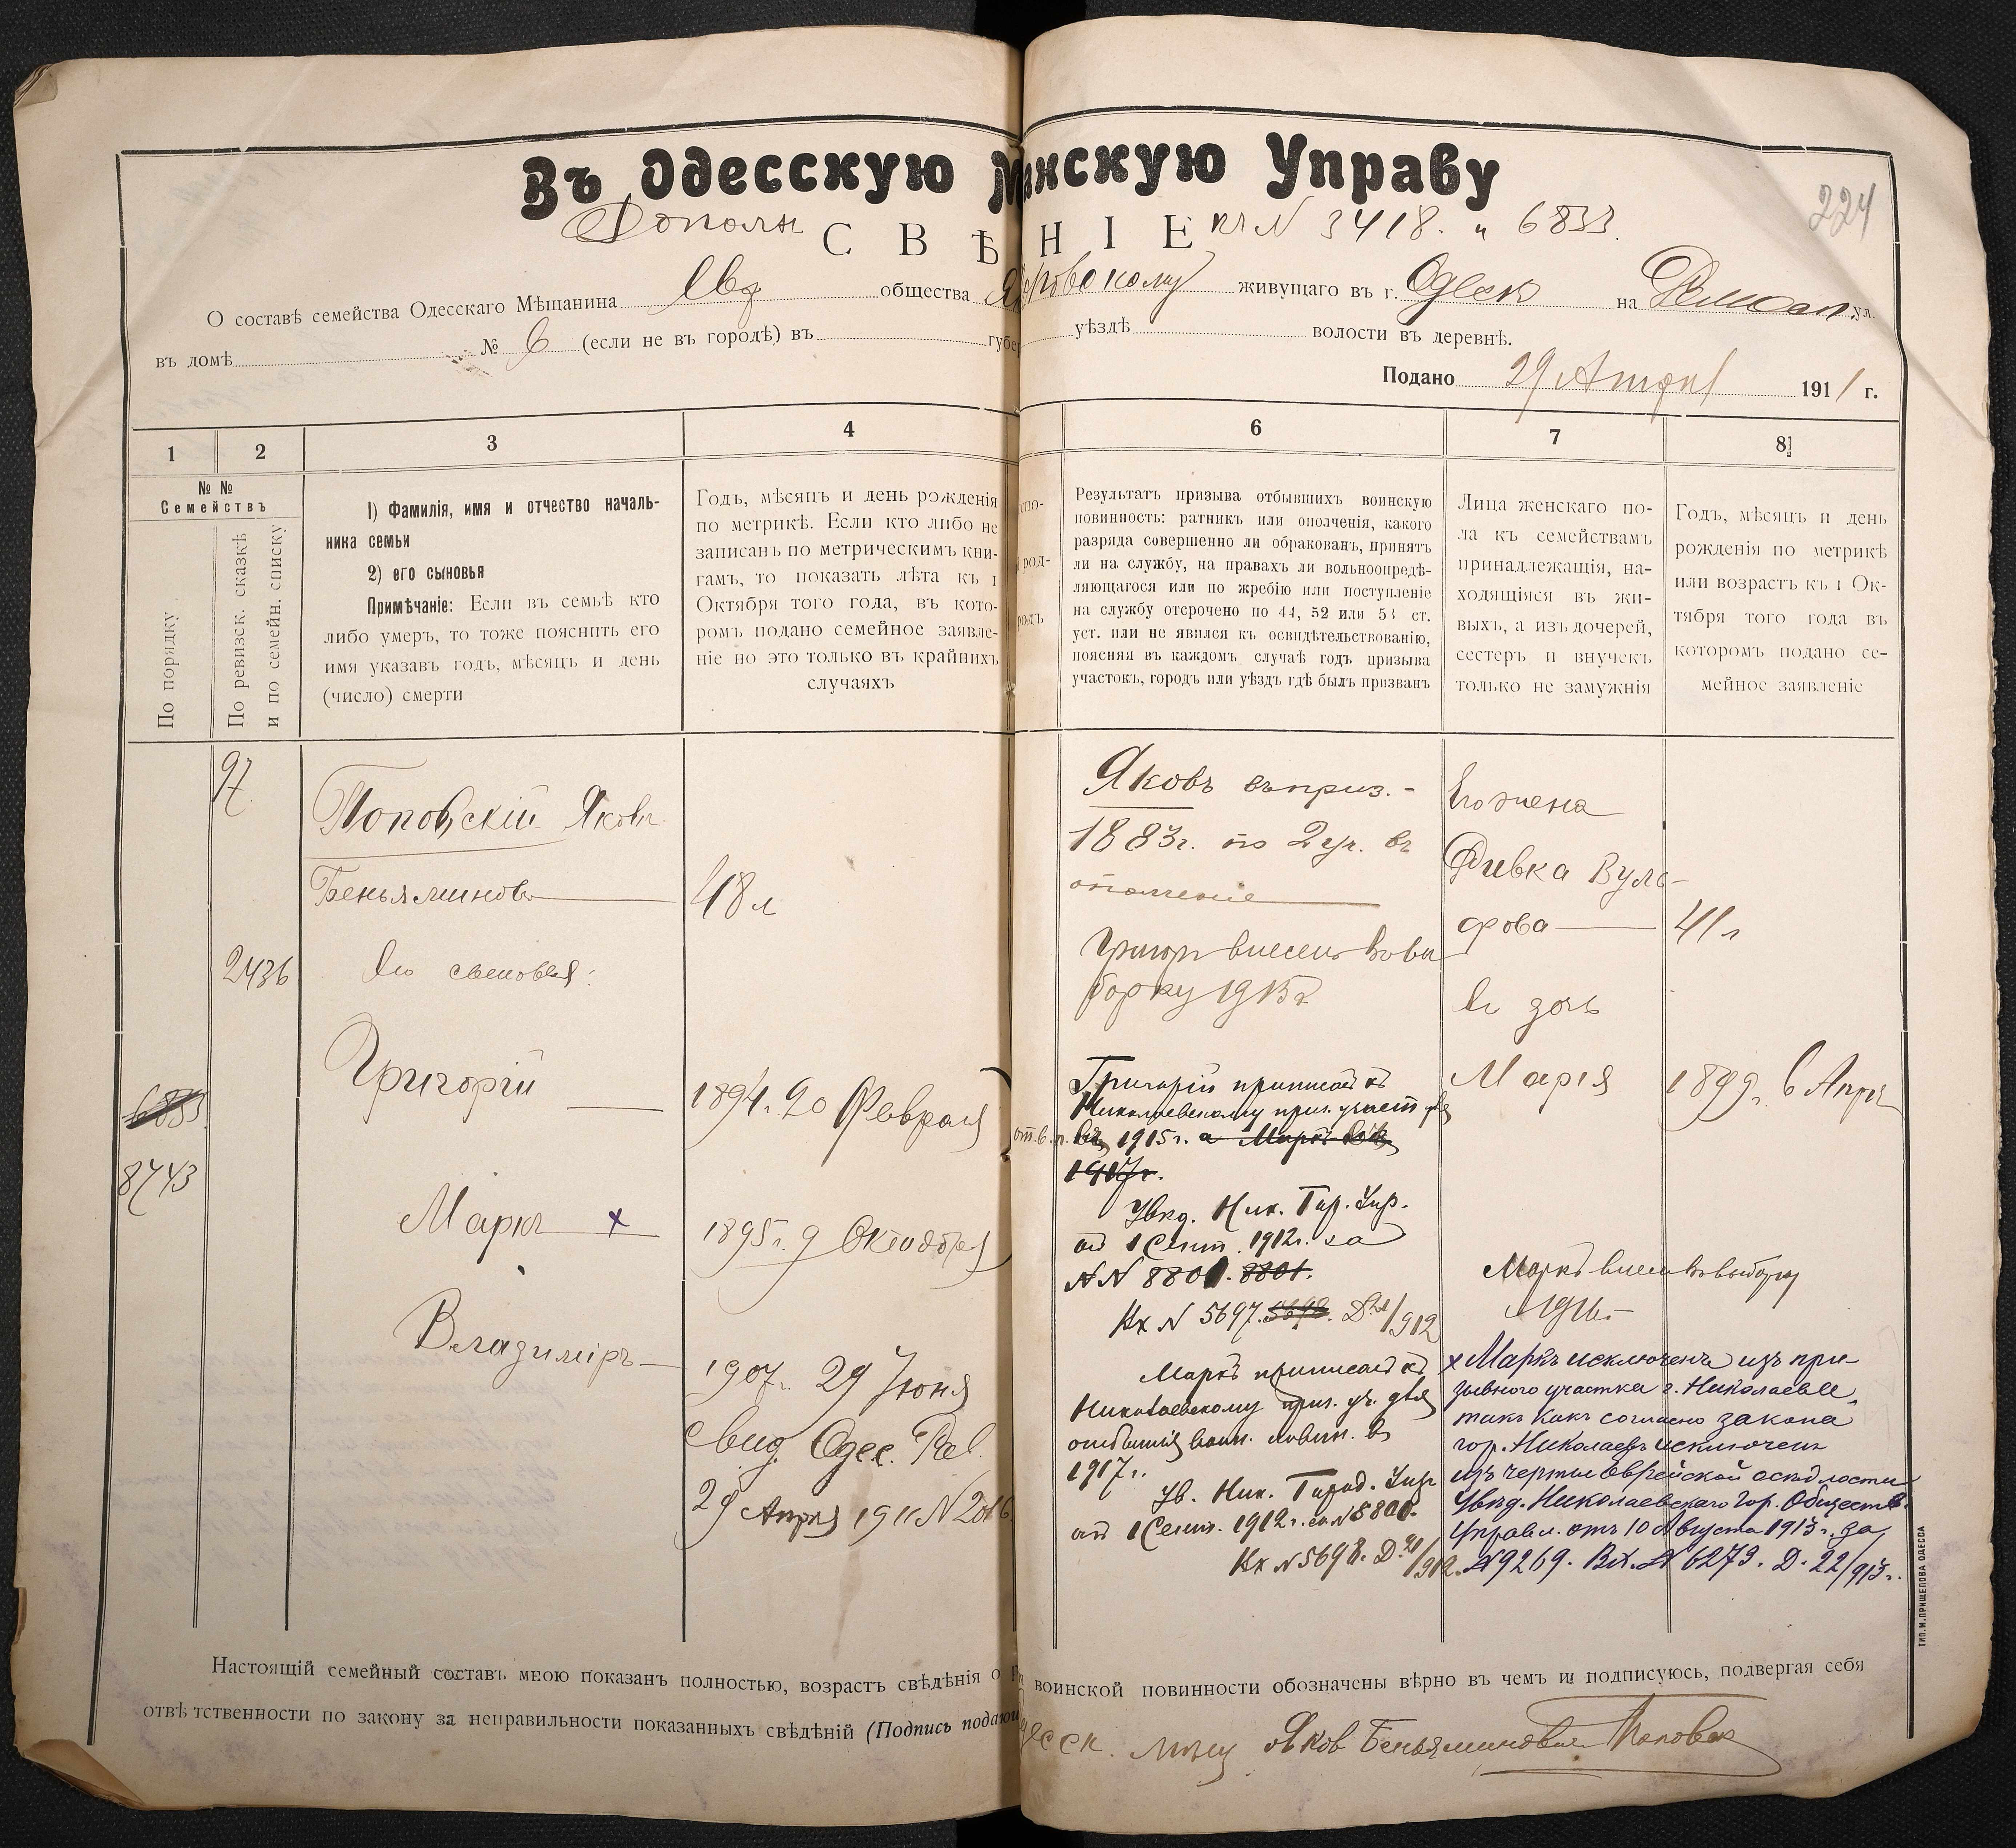 Въ Одесскую М нскую Управу
224
Дополн къ N 3418. и 6833.
С В Ѣ Н І Е
О составѣ семейства Одесскаго Мѣщанина Евр общества живущаго въ г. Одесс на ул.
въ домѣ № 6 (если не въ городѣ) въ губер уѣздѣ волости въ деревнѣ.
Подано 29 Апрѣл 1911 г.
1 2 3 4 6 7 8
№ №
Семействъ
По порядку
По ревизск. сказкѣ
и по семейн. списку
1) Фамилія, имя и отчество началь-
ника семьи
2) его сыновья
Примѣчаніе: Если въ семьѣ кто
либо умеръ, то тоже пояснить его
имя указавъ годъ, мѣсяцъ и день
(число) смерти
Годъ, мѣсяцъ и день рожденія
по метрикѣ. Если кто либо не
записанъ по метрическимъ кни-
гамъ, то показать лѣта къ 1
Октября того года, въ кото-
ромъ подано семейное заявле-
ніе но это только въ крайнихъ
случаяхъ
Результатъ призыва отбывшихъ воинскую
повинность: ратникъ или ополченія, какого
разряда совершенно ли обракованъ, принятъ
ли на службу, на правахъ ли вольноопредѣ-
ляющагося или по жребію или поступленіе
на службу отсрочено по 44, 52 или 53 ст.
уст. или не явился къ освидѣтельствованію,
поясняя въ каждомъ случаѣ годъ призыва
участокъ, городъ или уѣздъ гдѣ былъ призванъ
Лица женскаго по-
ла къ семействамъ
принадлежащія, на-
ходящіяся въ жи-
выхъ, а изъ дочерей,
сестеръ и внучекъ
только не замужнія
Годъ, мѣсяцъ и день
рожденія по метрикѣ
или возрастъ къ 1 Ок-
тября того года въ
которомъ подано се-
мейное заявленіе
97
Поповскій Яковъ
Беньяминовъ
48 л
2436
Его сыновья:
Григорій
1894г. 20 Февраля
6833
8743
Маркъ х
1895г. 9 Октября
Владиміръ
1907г. 29 Іюня
Свид. Одес. Рав.
29 Апрѣл 1911 N 2016
Яковъ въ приз.
1883г. по 2 уч. въ
ополченіе
Григор внесенъ во вы
борку 1915г
Григорій приписанъ къ
Николаевскому приз. участ. для
от. в. п. въ 1915г. а Маркъ въ
1917г.
Увѣд. Ник. Гор. Упр.
от 1 Сент. 1912г. за
NN 8801. 8801.
Вх N 5697. 5698. Д. 21/912
Маркъ приписанъ къ
Николаевскому приз. уч. для
отбытія воин. повин. въ
1917г.
Ув. Ник. Город. Упр
от 1 Сент. 1912г. за N 8801.
Вх N 5698. Д. 21/912.
Его жена
Ривка Вуль-
фова
41 л
Его дочь
Марія
1899г. 6 Апрѣл
Маркъ внесенъ во выборку
1916г.
х Маркъ исключенъ изъ при-
зывного участка г. Николаева,
такъ какъ согласно закона
гор. Николаевъ исключенъ
изъ черты еврейской осѣдлости
Увѣд. Николаевскаго Гор. Обществ.
Управл. отъ 10 Августа 1913г. за
N 9269. Вх. N 6273. Д. 22/913г.
Настоящій семейный составъ мною показанъ полностью, возрастъ свѣдѣнія о воинской повинности обозначены вѣрно въ чемъ и подписуюсь, подвергая себя
отвѣтственности по закону за неправильности показанныхъ свѣдѣній (Подпись подаю
Одесск. мѣщ Яков Беньяминовъ Поповск
ТИП. М. ПРИЩЕПОВА ОДЕССА